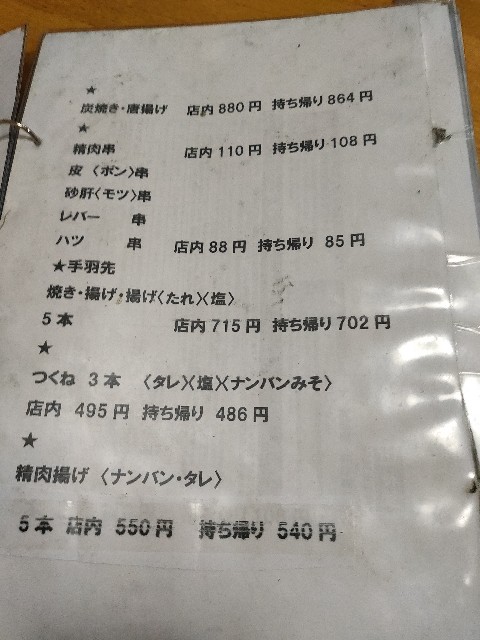 ★
炭焼き・唐揚げ 店内 880 円 持ち帰り 864 円
★
精肉串 店内 110 円 持ち帰り 108 円
皮〈ポン〉串
砂肝〈モツ〉串
レバー 串
ハツ 串 店内 88 円 持ち帰り 85 円
★手羽先
焼き・揚げ・揚げ〈たれ〉〈塩〉
5本 店内 715 円 持ち帰り 702 円
★
つくね 3本 〈タレ〉〈塩〉〈ナンバンみそ〉
店内 495 円 持ち帰り 486 円
★
精肉揚げ〈ナンバン・タレ〉
5本 店内 550 円 持ち帰り 540 円